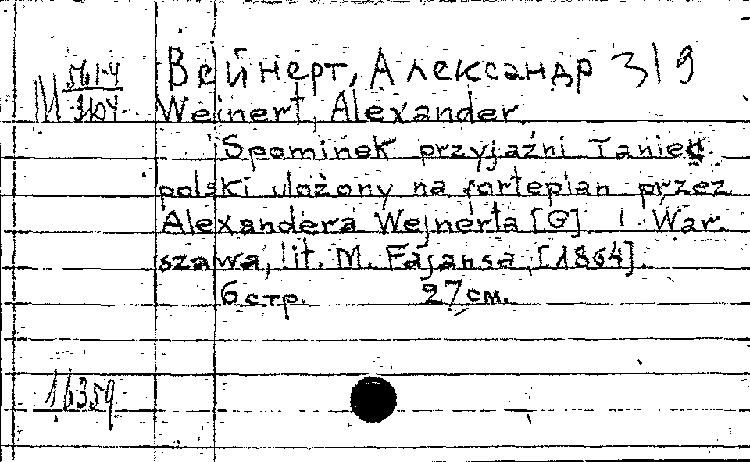 Вейнерт, Александр 319
М 561-4
Wejnert, Alexander.
Spominek przyjaźni Taniec
polski ułożony na fortepian przez
Alexandera Wejnerta [G] War.
szawa, lit. M. Fajansa, [1864].
6 стр. 27 см.
16359